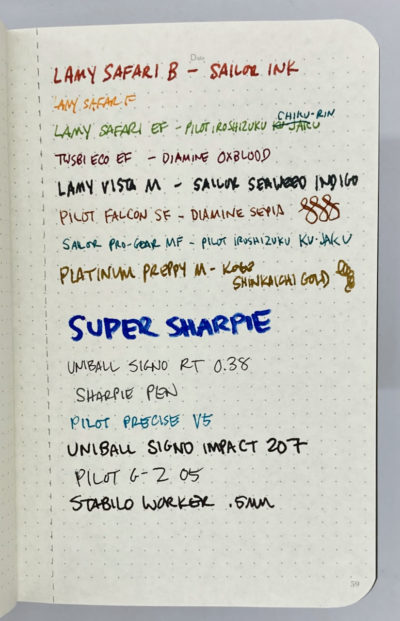 Date
LAMY SAFARI B - SAILOR INK
LAMY SAFARI F
CHIKU-RIN
LAMY SAFARI EF - PILOT IROSHIZUKU KU-JAKU
TWSBI ECO EF - DIAMINE OXBLOOD
LAMY VISTA M - SAILOR SEAWEED INDIGO
PILOT FALCON SF - DIAMINE SEPIA
SAILOR PRO-GEAR MF - PILOT IROSHIZUKU KU-JAKU
PLATINUM PREPPY M - KOBE
SHINKAICHI GOLD
SUPER SHARPIE
UNIBALL SIGNO RT 0.38
SHARPIE PEN
PILOT PRECISE V5
UNIBALL SIGNO IMPACT 207
PILOT G-2 05
STABILO WORKER .5mm
59